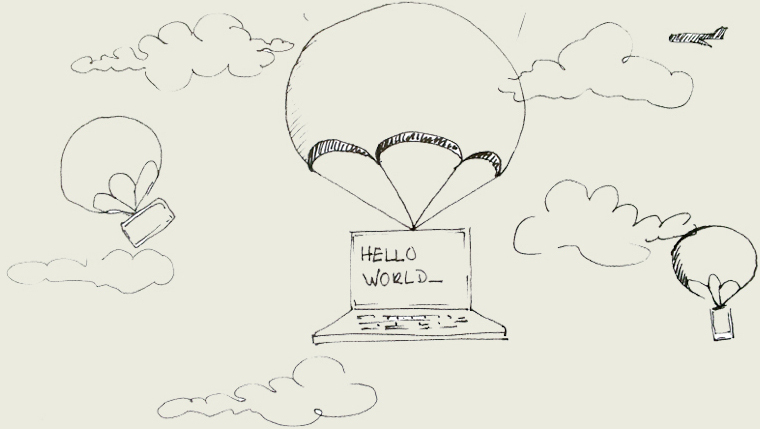 HELLO
WORLD_